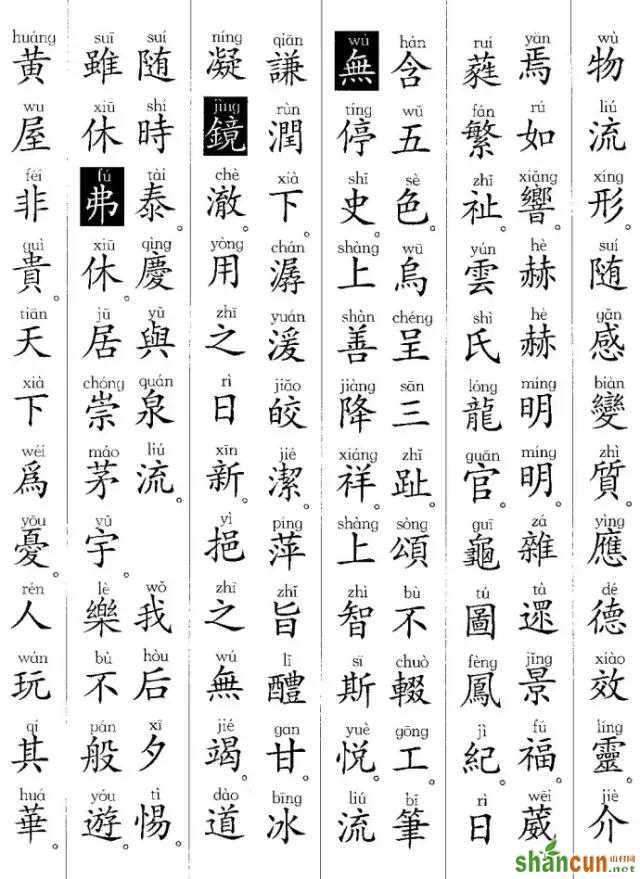 wù liú xíng suí gǎn biàn zhì yìng dé xiào líng jiè
物流形。随感變質。應德效靈。介
yān rú xiǎng hè hè míng míng zá tà jǐng fú wēi
焉如響。赫赫明明。雜遝景福。葳
ruí fán zhǐ yún shì lóng guān guī tú fèng jì rì
蕤繁祉。雲氏龍官。龜圖鳳紀。日
hán wǔ sè wū chéng sān zhǐ sòng bù chuò gōng bǐ
含五色。烏呈三趾。頌不輟工。筆
wú tíng shǐ shàng shàn jiàng xiáng shàng zhì sī yuè liú
無停史。上善降祥。上智斯悦。流
qiān rùn xià chán yuán jiǎo jié píng zhǐ lǐ gan bīng
謙潤下。潺湲皎潔。萍旨醴甘。冰
níng jìng chè yòng zhī rì xīn yì zhī wú jié dào
凝鏡澈。用之日新。挹之無竭。道
suí shí tài qìng yǔ quán liú wǒ hòu xī tì
随時泰。慶與泉流。我后夕惕。
suī xiū fú xiū jū chóng máo yǔ lè bù pán yóu
雖休弗休。居崇茅宇。樂不般遊。
huáng wu fēi guì tiān xià wéi yōu rén wán qí huá
黄屋非貴。天下爲憂。人玩其華。
shancun 山村网 .net